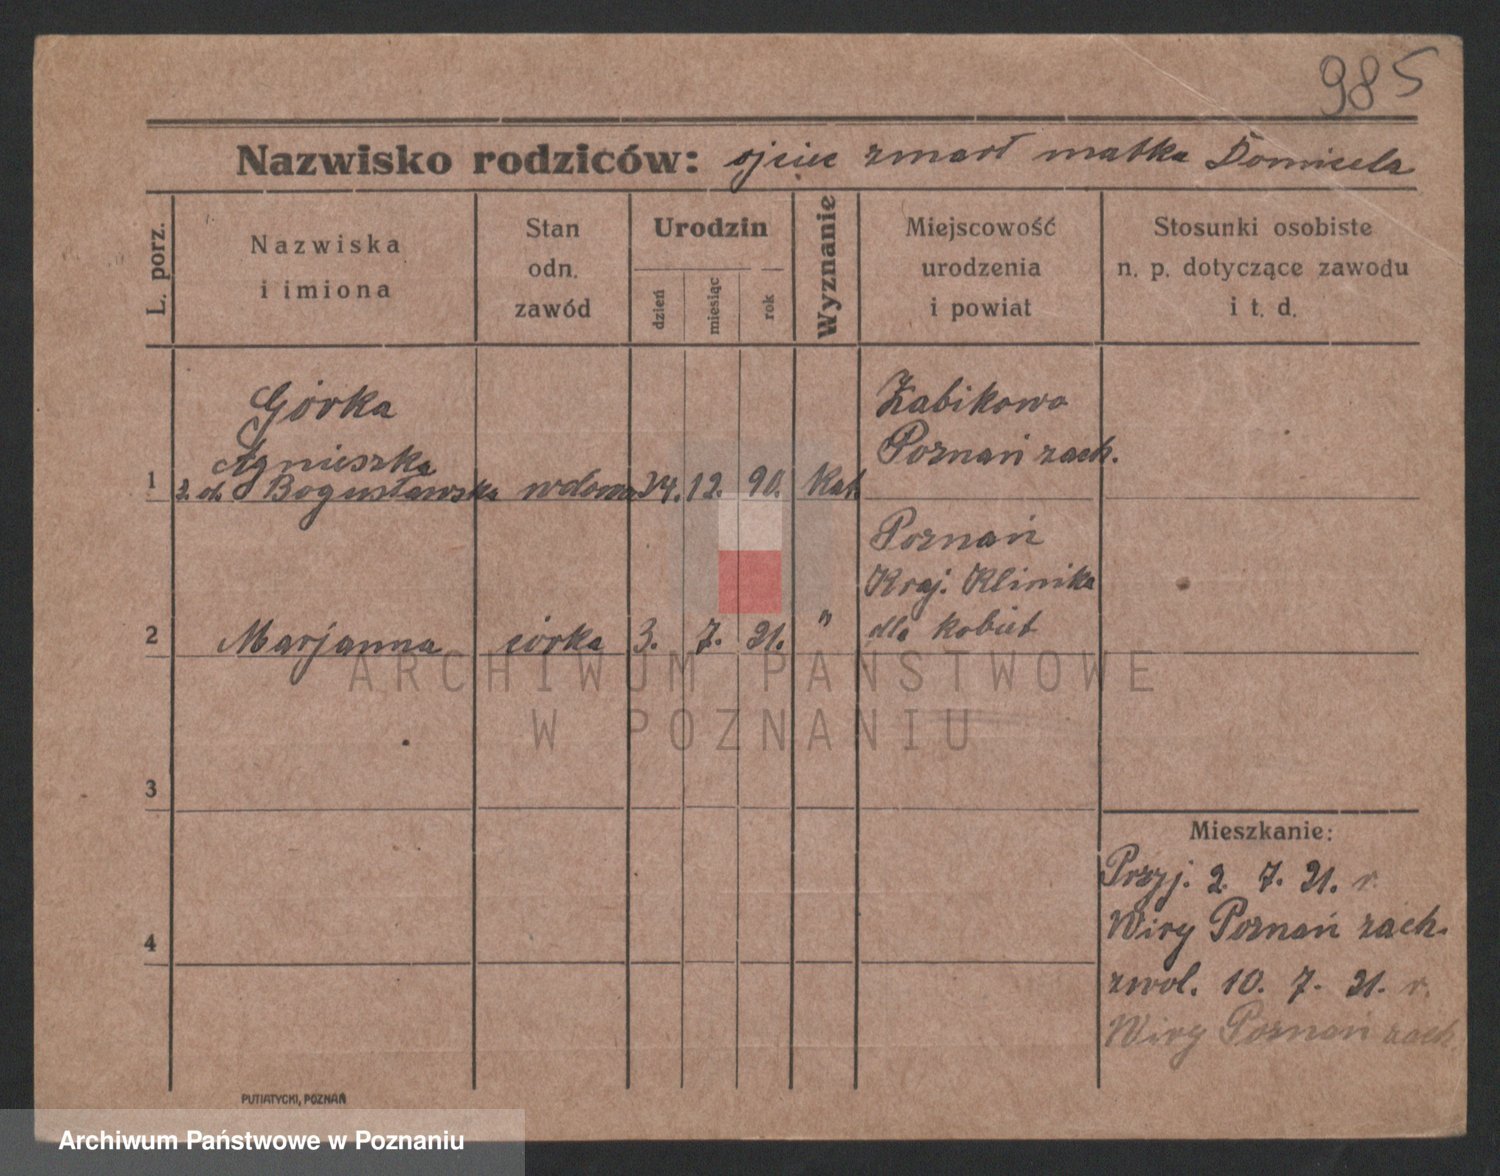 985
Nazwisko rodziców: ojciec zmarł matka Domicela
L. porz.
Nazwiska
i imiona
Stan
odn.
zawód
Urodzin
dzień
miesiąc
rok
Wyznanie
Miejscowość
urodzenia
i powiat
Stosunki osobiste
n. p. dotyczące zawodu
i t. d.
Górka
Agnieszka
1 z. d. Bogusławska wdowa 24. 12. 90. Kat.
Żabikowo
Poznań zach.
2 Marjanna córka 3. 7. 21. "
Poznań
Kraj. Klinika
dla kobiet
ARCHIWUM PAŃSTWOWE
W POZNANIU
3
4
Mieszkanie:
Przyj. 2. 7. 21. r.
Wiry Poznań zach.
zwol. 10. 7. 21. r.
Wiry Poznań zach.
PUTIATYCKI, POZNAŃ
Archiwum Państwowe w Poznaniu